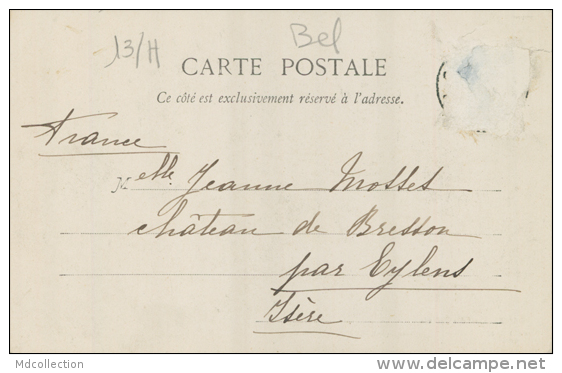 13/H
Bel
CARTE POSTALE
Ce côté est exclusivement réservé à l'adresse.
France
Melle Jeanne Mottet
château de Bresson
par Eylens
Isère
Mdcollection
www.delcampe.net